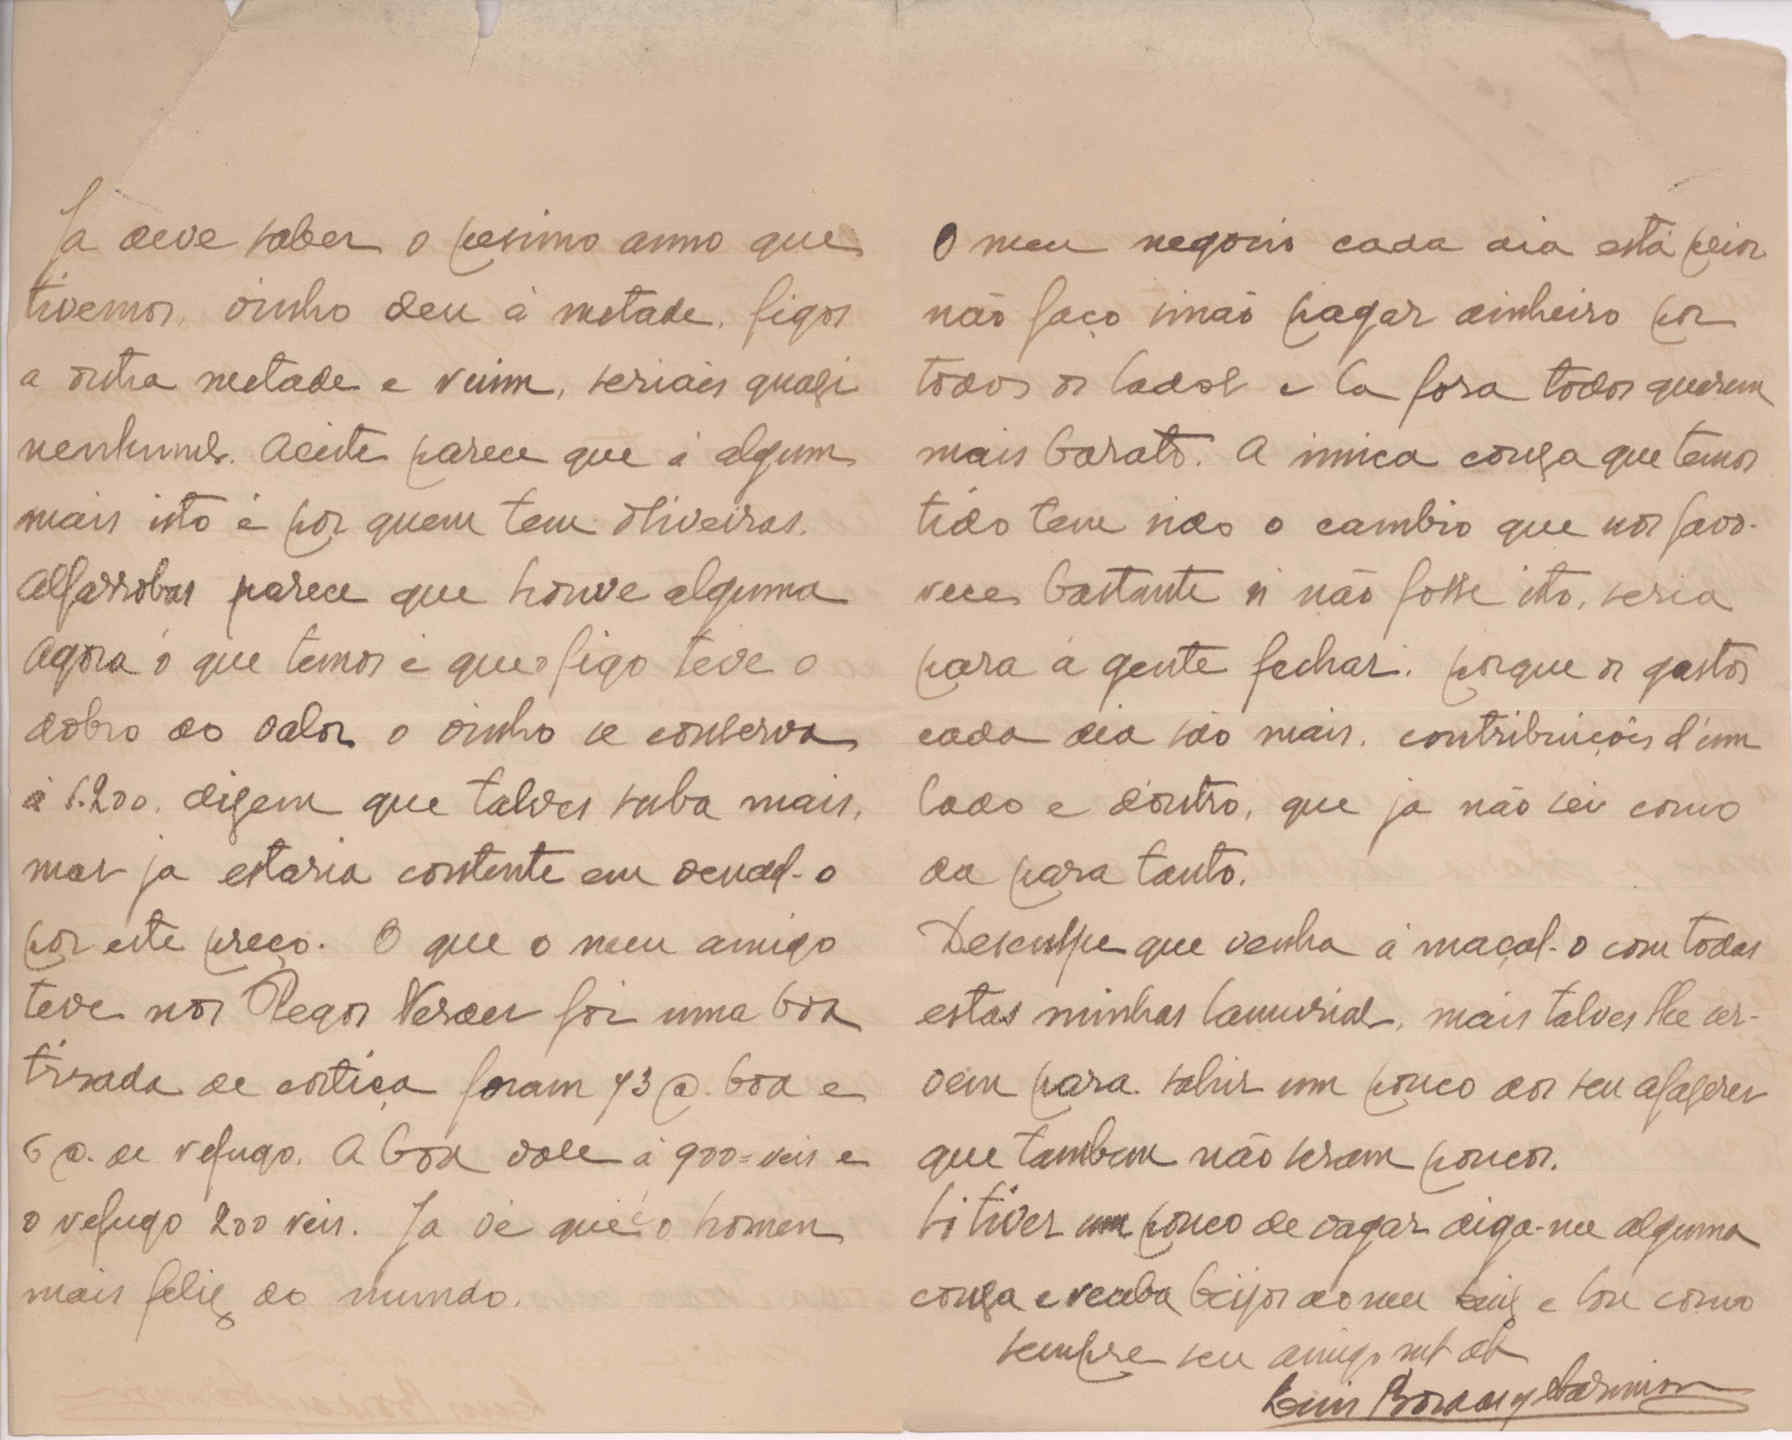 Ja deve saber o pesimo anno que
tivemos, vinho deu á metade, figos
a outra metade e ruim, seriais quasi
nenhums. Aceite parece que á algum
mais isto é por quem tem oliveiras.
Alfarrobas parece que houve alguma
Agora ó que temos é que o figo teve o
dobro do valor o vinho se conserva
á 1.200, dizem que talves suba mais,
mas ja estaria contente em vendel-o
por este preço. O que o meu amigo
teve nos Pegos Verdes foi uma boa
tirada de cortiça foram 73 @. boa e
6 @. de refugo. A boa vale á 900=reis e
o refugo 200 reis. Ja vé que é o homen
mais feliz do mundo.
O meu negocio cada dia está peior
não faço sinão pagar dinheiro por
todos os lados e la fora todos querem
mais barato. A unica couza que temos
tido tem sido o cambio que nos favo-
rece bastante si não fosse isto, seria
para á gente fechar, porque os gastos
cada dia são mais, contribuiçôis d'um
lado e d'outro, que ja não sei como
da para tanto.
Desculpe que venha á maçal-o com todas
estas minhas lamurias, mais talves lhe ser-
vem para sahir um pouco dos seu afazeres
que tambem não seram poucos.
Si tiver um pouco de vagar diga-me alguma
couza e receba beijos do meu Luiz e sou como
sempre seu amigo
Luis